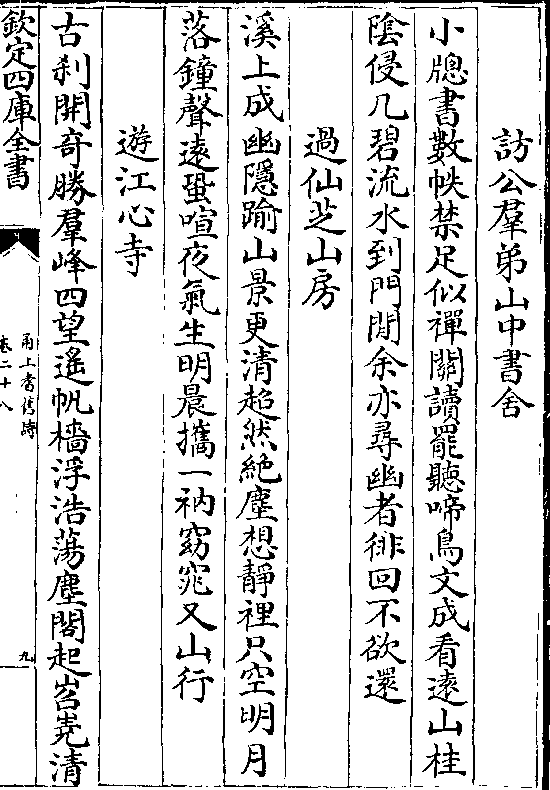 訪公羣弟山中書舍
小牕書數帙禁足似禪關讀罷聽啼鳥文成看遠山桂
陰侵几碧流水到門閒余亦尋幽者徘回不欲還
過仙芝山房
溪上成幽隱踰山景更清超然絶塵想靜裡只空明月
落鐘聲遠蛩喧夜氣生明晨攜一衲窈窕又山行
遊江心寺
古刹開奇勝羣峰四望遙帆檣浮浩蕩塵閣起岧嶤清
欽定四庫全書
甬上耆舊詩
卷二十八
九